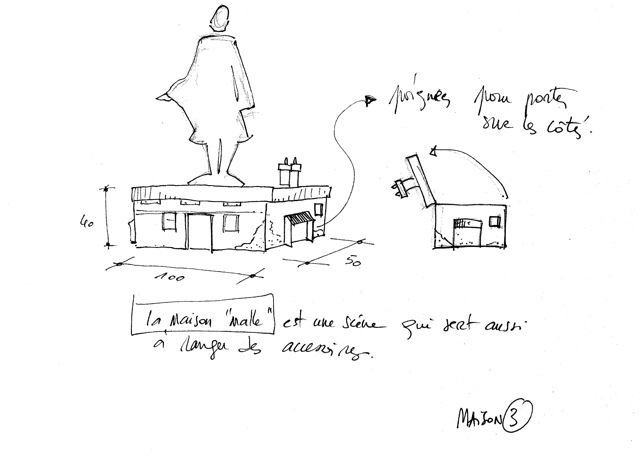 poignées pour porter
sur les côtés.
40
100
50
la maison "malle" est une scène qui sert aussi
à ranger des accessoires.
MAISON 3